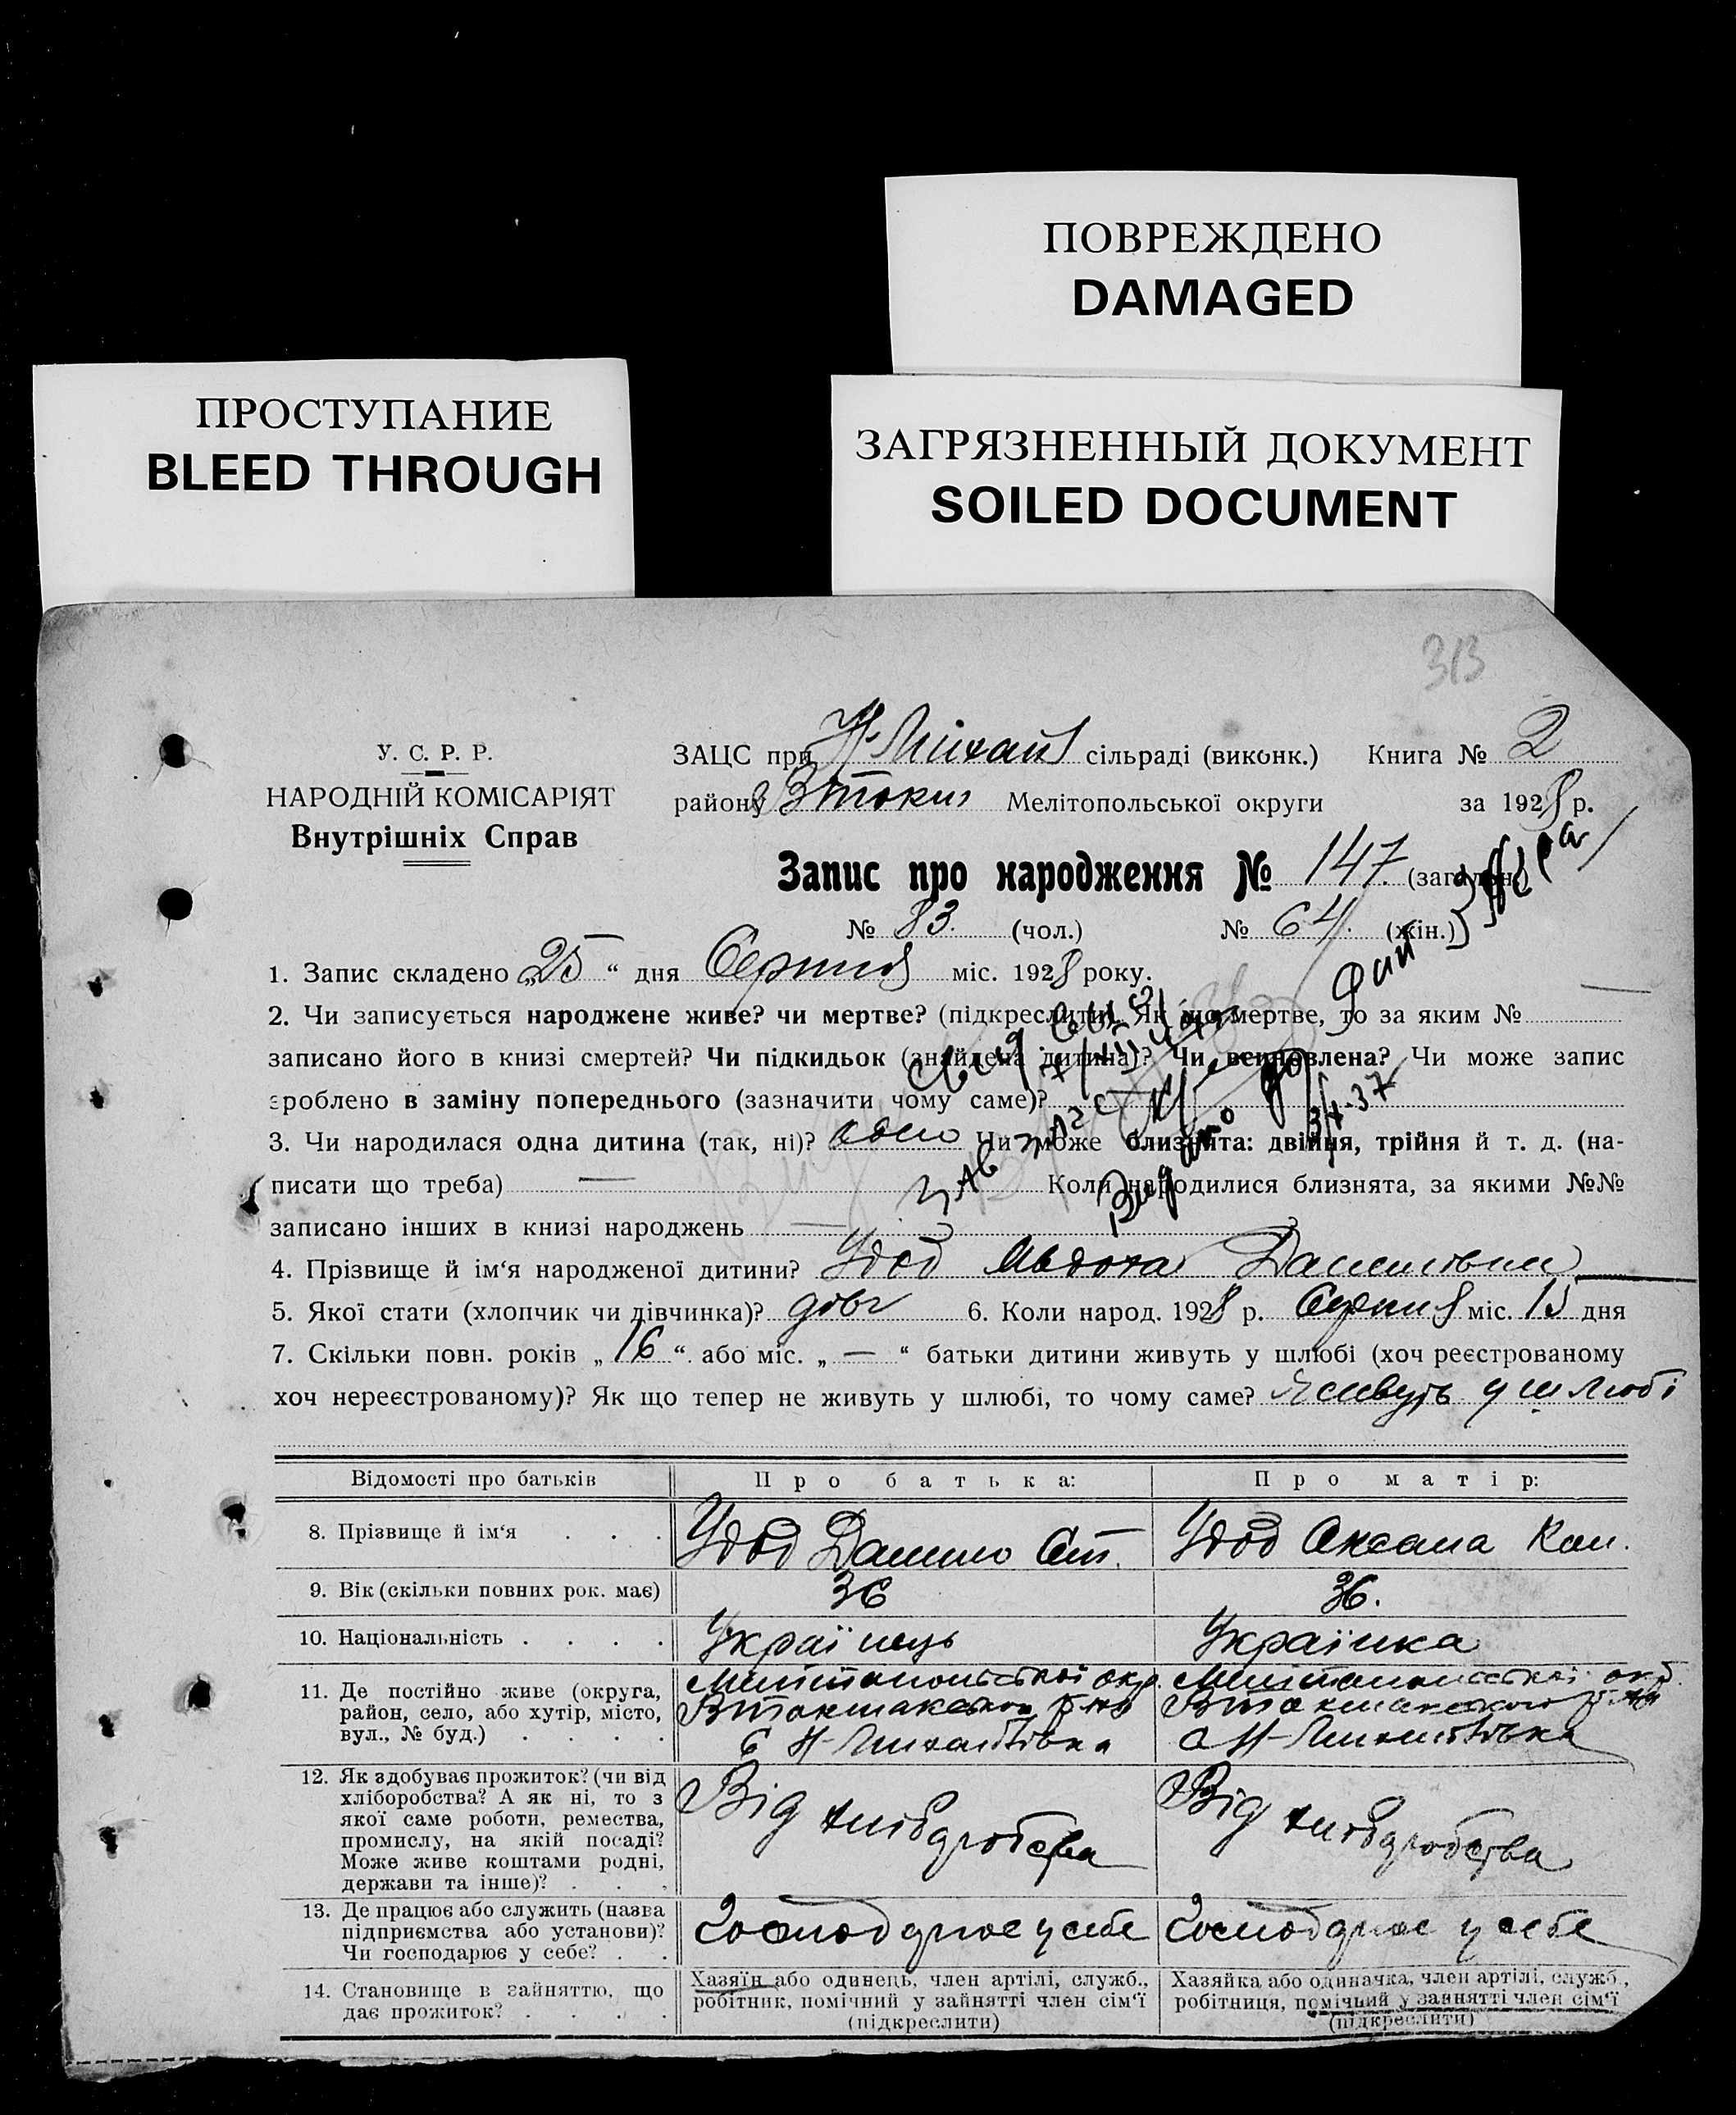 ПОВРЕЖДЕНО
DAMAGED
ПРОСТУПАНИЕ
BLEED THROUGH
ЗАГРЯЗНЕННЫЙ ДОКУМЕНТ
SOILED DOCUMENT
313
У. С. Р. Р.
НАРОДНІЙ КОМІСАРІЯТ
Внутрішніх Справ
ЗАЦС при Н-Михай сільраді (виконк.) Книга № 2
району Втокм Мелітопольської округи за 1928 р.
Запис про народження № 147. (загальн.)
№ 83. (чол.) № 64. (жін.)
1. Запис складено „25“ дня Серпня міс. 1928 року.
2. Чи записується народжене живе? чи мертве? (підкреслити). Як що мертве, то за яким №
записано його в книзі смертей? Чи підкидьок (знайдена дитина)? Чи всиновлена? Чи може запис
зроблено в заміну попереднього (зазначити чому саме)?
3. Чи народилася одна дитина (так, ні)? одно Чи може близнята: двійня, трійня й т. д. (на-
писати що треба) — Коли народилися близнята, за якими №№
записано інших в книзі народжень —
4. Прізвище й ім‘я народженої дитини? Удод Авдотя Данилівни
5. Якої стати (хлопчик чи дівчинка)? дівч 6. Коли народ. 1928 р. Серпня міс. 15 дня
7. Скільки повн. років „16“ або міс. „—“ батьки дитини живуть у шлюбі (хоч реєстрованому
хоч нереєстрованому)? Як що тепер не живуть у шлюбі, то чому саме? Живуть у шлюбі
Відомості про батьків Про батька: Про матір:
8. Прізвище й ім‘я . . . Удод Данило Ст. Удод Оксана Кон.
9. Вік (скільки повних рок. має) 36 36.
10. Національність . . . . Українець Українка
11. Де постійно живе (округа,
район, село, або хутір, місто,
вул., № буд.) . . . .
Мелітопольської окр.
Втокмакського р-на
с Н-Михайлівка
Мелітопольської окр.
Втокмакського р-на
с Н-Михайлівка
12. Як здобуває прожиток? (чи від
хліборобства? А як ні, то з
якої саме роботи, ремества,
промислу, на якій посаді?
Може живе коштами родні,
держави та інше)? . . .
Від хліборобства
Від хліборобства
13. Де працює або служить (назва
підприємства або установи)?
Чи господарює у себе? . .
Господарює у себе
Господарює у себе
14. Становище в зайняттю, що
дає прожиток? . . . .
Хазяїн або одинець, член артілі, служб.,
робітник, помічний у зайнятті член сім‘ї
(підкреслити)
Хазяйка або одиначка, член артілі, служб.,
робітниця, помічний у зайнятті член сім‘ї
(підкреслити)